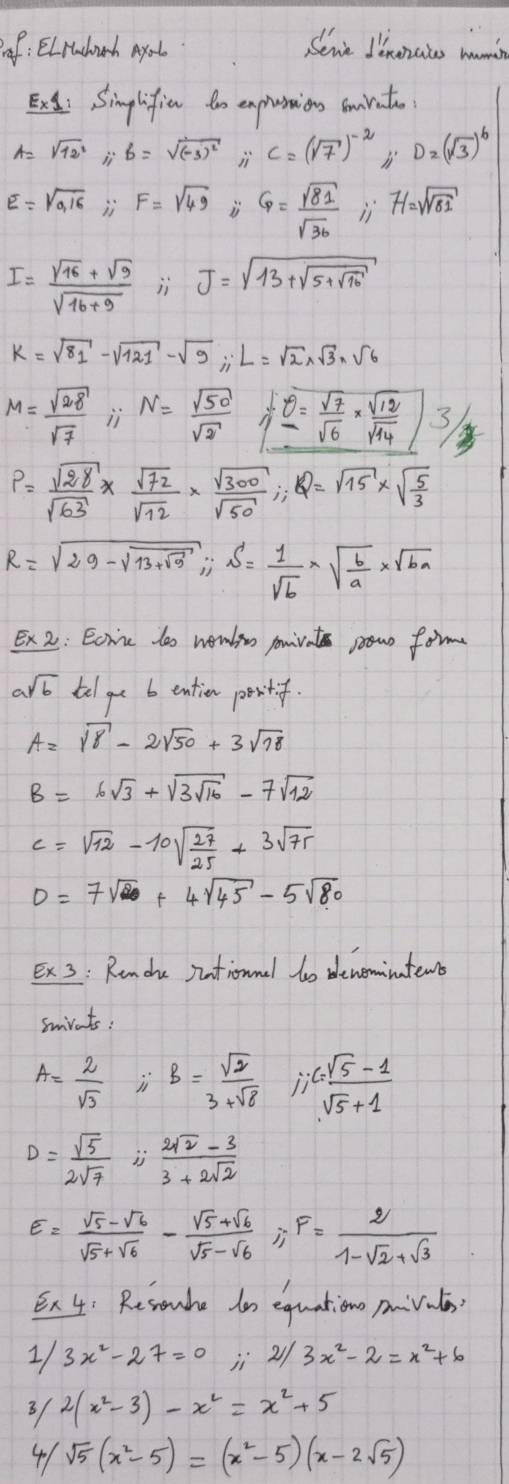 Prof: EL Machrouh Ayoub. Série d'exercices numér
Ex1: Simplifier les expressions suivantes:
A= √12² ;; B= √(-3)² ;; C= (√7)⁻² ;; D= (√3)⁶
E= √0,16 ;; F= √49 ;; G= √81/√36 ;; H= √√81
I= (√16 + √9)/√(16+9) ;; J= √(13+√(5+√16))
K= √81 - √121 - √9 ;; L= √2 × √3 × √6
M= √28/√7 ;; N= √50/√2 ;; O= √7/√6 × √12/√14 3/
P= √28/√63 × √72/√12 × √300/√50 ;; Q= √15 × √(5/3)
R= √(29-√(13+√9)) ;; S= 1/√b × √(b/a) × √ba
Ex 2: Ecrire les nombres suivants sous forme
a√b tel que b entier positif.
A= √8 - 2√50 + 3√18
B= 6√3 + √(3√16) - 7√12
C= √12 - 10√(27/25) + 3√75
D= 7√20 + 4√45 - 5√80
Ex 3: Rendre rationnel les dénominateurs
suivants:
A= 2/√3 ;; B= √2/(3+√8) ;; C= (√5-1)/(√5+1)
D= √5/(2√7) ;; (2√2-3)/(3+2√2)
E= (√5-√6)/(√5+√6) - (√5+√6)/(√5-√6) ;; F= 2/(1-√2+√3)
Ex 4: Résoudre les équations suivantes:
1/ 3x²-27=0 ;; 2/ 3x²-2=x²+6
3/ 2(x²-3) - x² = x²+5
4/ √5(x²-5) = (x²-5)(x-2√5)